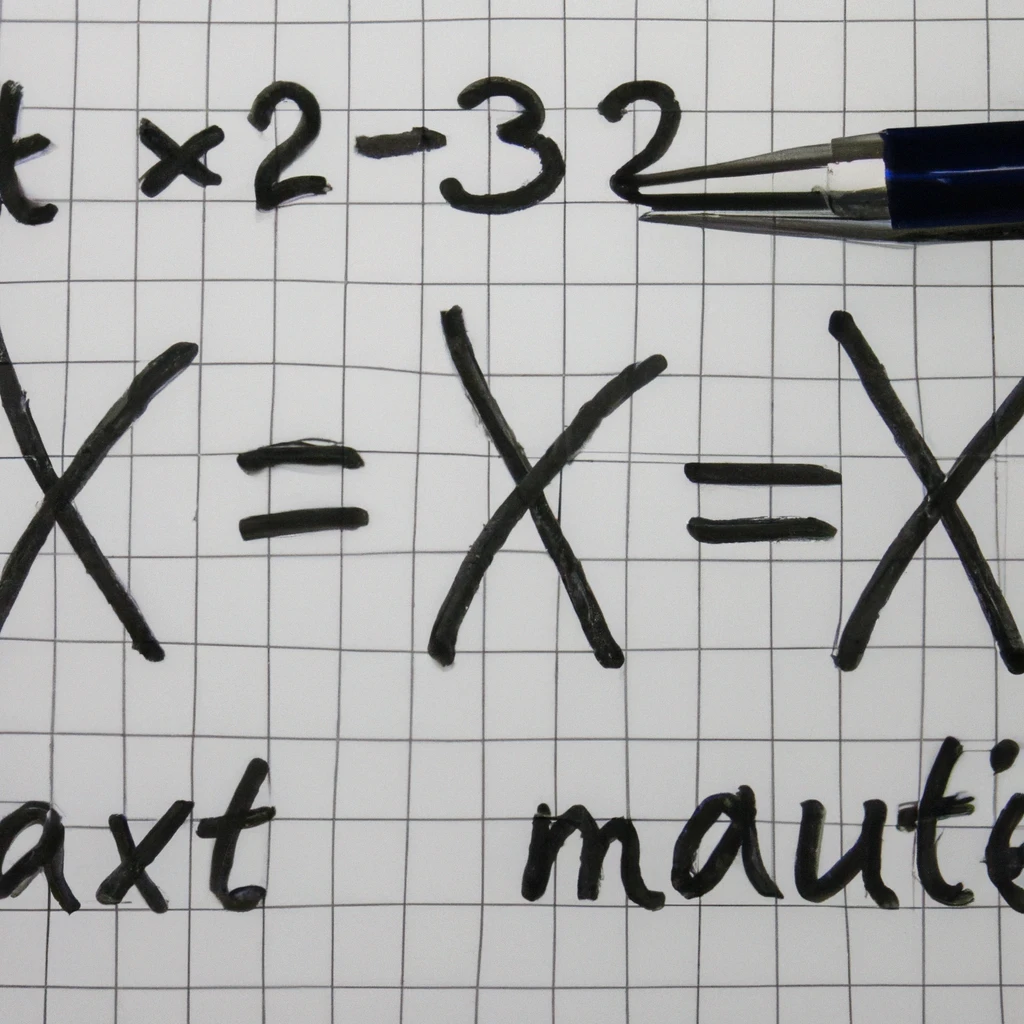 t x2-32
X = X = X
axt maute